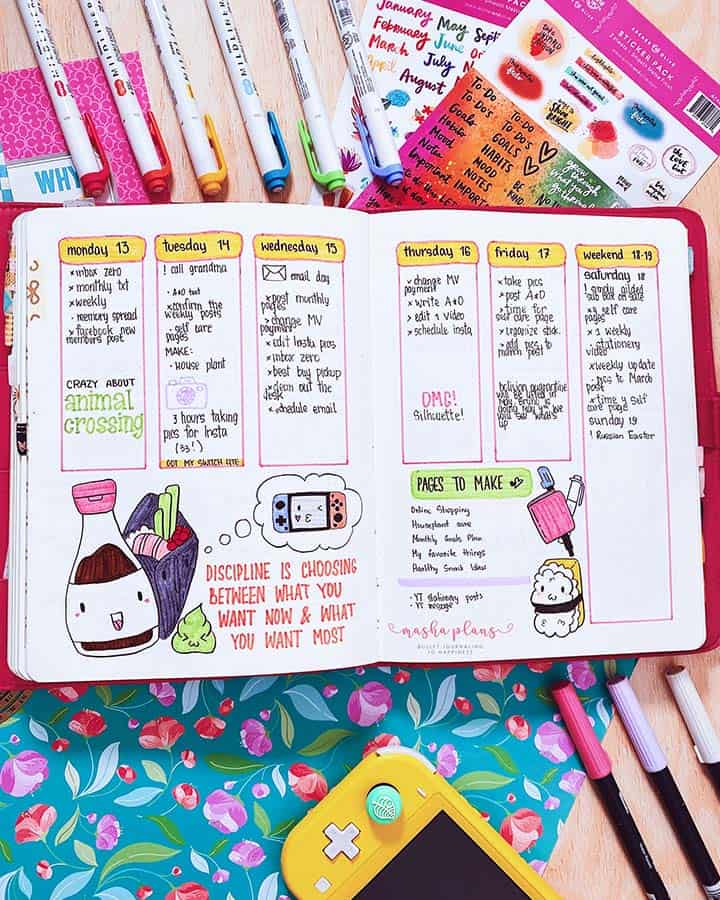 January
February
March
April
May
June
July
August
Sept
Oc
STICKER PACK
To-Do
To-Do's
Goals
Habits
Mood
Notes
Important
TO-DO
TO-DO'S
GOALS
HABITS
MOOD
NOTES
IMPORTANT
BE KIND
grow through what you go through
SHINE BRIGHT
WHY
monday 13
× inbox zero
× monthly txt
× weekly
· memory spread
× facebook new
members post
CRAZY ABOUT
animal
crossing
tuesday 14
! call grandma
· A+O text
× confirm the
weekly posts
· self care
pages
MAKE:
· House plant
3 hours taking
pics for Insta
(33!)
GOT MY SWITCH LITE
wednesday 15
email day
× post monthly
pages
× change MV
payment
× edit Insta pics
× inbox zero
× best buy pickup
× clean out the
desk
× schedule email
thursday 16
× change MV
payment
× write A+O
× edit 1 video
× schedule insta
OMG!
Silhouette!
friday 17
× take pics
× post A+O
× time for
self care page
× organize stick.
× add pics to
march post
weekend 18-19
saturday 18
! simply gilded
sub box on sale
× 4 self care
pages
× 1 weekly
· stationery
video
× weekly update
× pics to March
post
× time 4 self
care page
sunday 19
! Russian Easter
DISCIPLINE IS CHOOSING
BETWEEN WHAT YOU
WANT NOW & WHAT
YOU WANT MOST
PAGES TO MAKE
Online Shopping
Houseplant care
Monthly Goals Plan
My favorite things
Healthy Snack Ideas
· YT stationery posts
· YT message
masha plans
BULLET JOURNALING
TO HAPPINESS